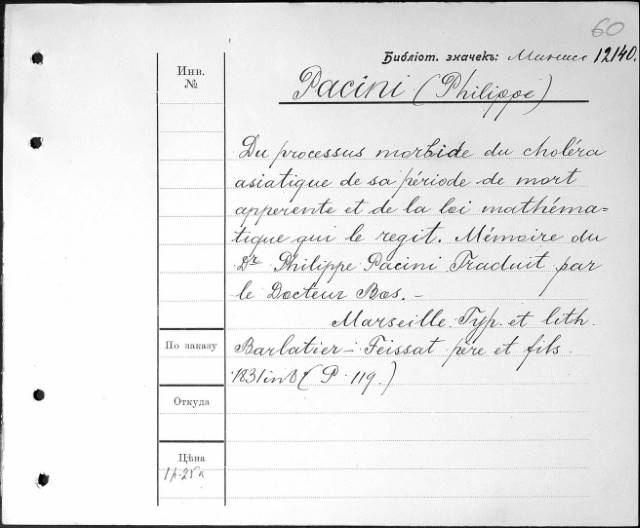 60
Библіот. значекъ: 12140.
Инв.
№
Pacini (Philippe)
Du processus morbide du choléra
asiatique de sa période de mort
apperente et de la loi mathéma=
tique qui le regit. Mémoire du
Dr Philippe Pacini Traduit par
le Docteur Bos. –
Marseille. Typ. et lith.
По заказу
Barlatier – Feissat père et fils
1831 in 8 (P. 119.)
Откуда
Цѣна
1 р. 25 к